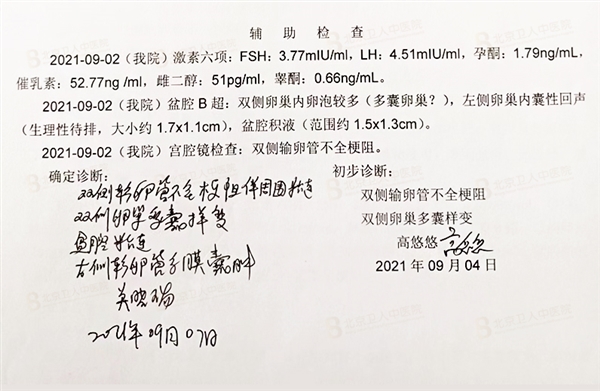 辅助检查
2021-09-02（我院）激素六项：FSH：3.77mIU/ml，LH：4.51mIU/ml，孕酮：1.79ng/mL，
催乳素：52.77ng /ml，雌二醇：51pg/ml，睾酮：0.66ng/mL。
2021-09-02（我院）盆腔 B 超：双侧卵巢内卵泡较多（多囊卵巢？），左侧卵巢内囊性回声
（生理性待排，大小约 1.7x1.1cm），盆腔积液（范围约 1.5x1.3cm）。
2021-09-02（我院）宫腔镜检查：双侧输卵管不全梗阻。
确定诊断：
双侧输卵管不全梗阻伴周围粘连
双侧卵巢多囊样变
盆腔粘连
右侧输卵管系膜囊肿
吴晓
2021年09月07日
初步诊断：
双侧输卵管不全梗阻
双侧卵巢多囊样变
高悠悠 高悠悠
2021 年 09 月 04 日